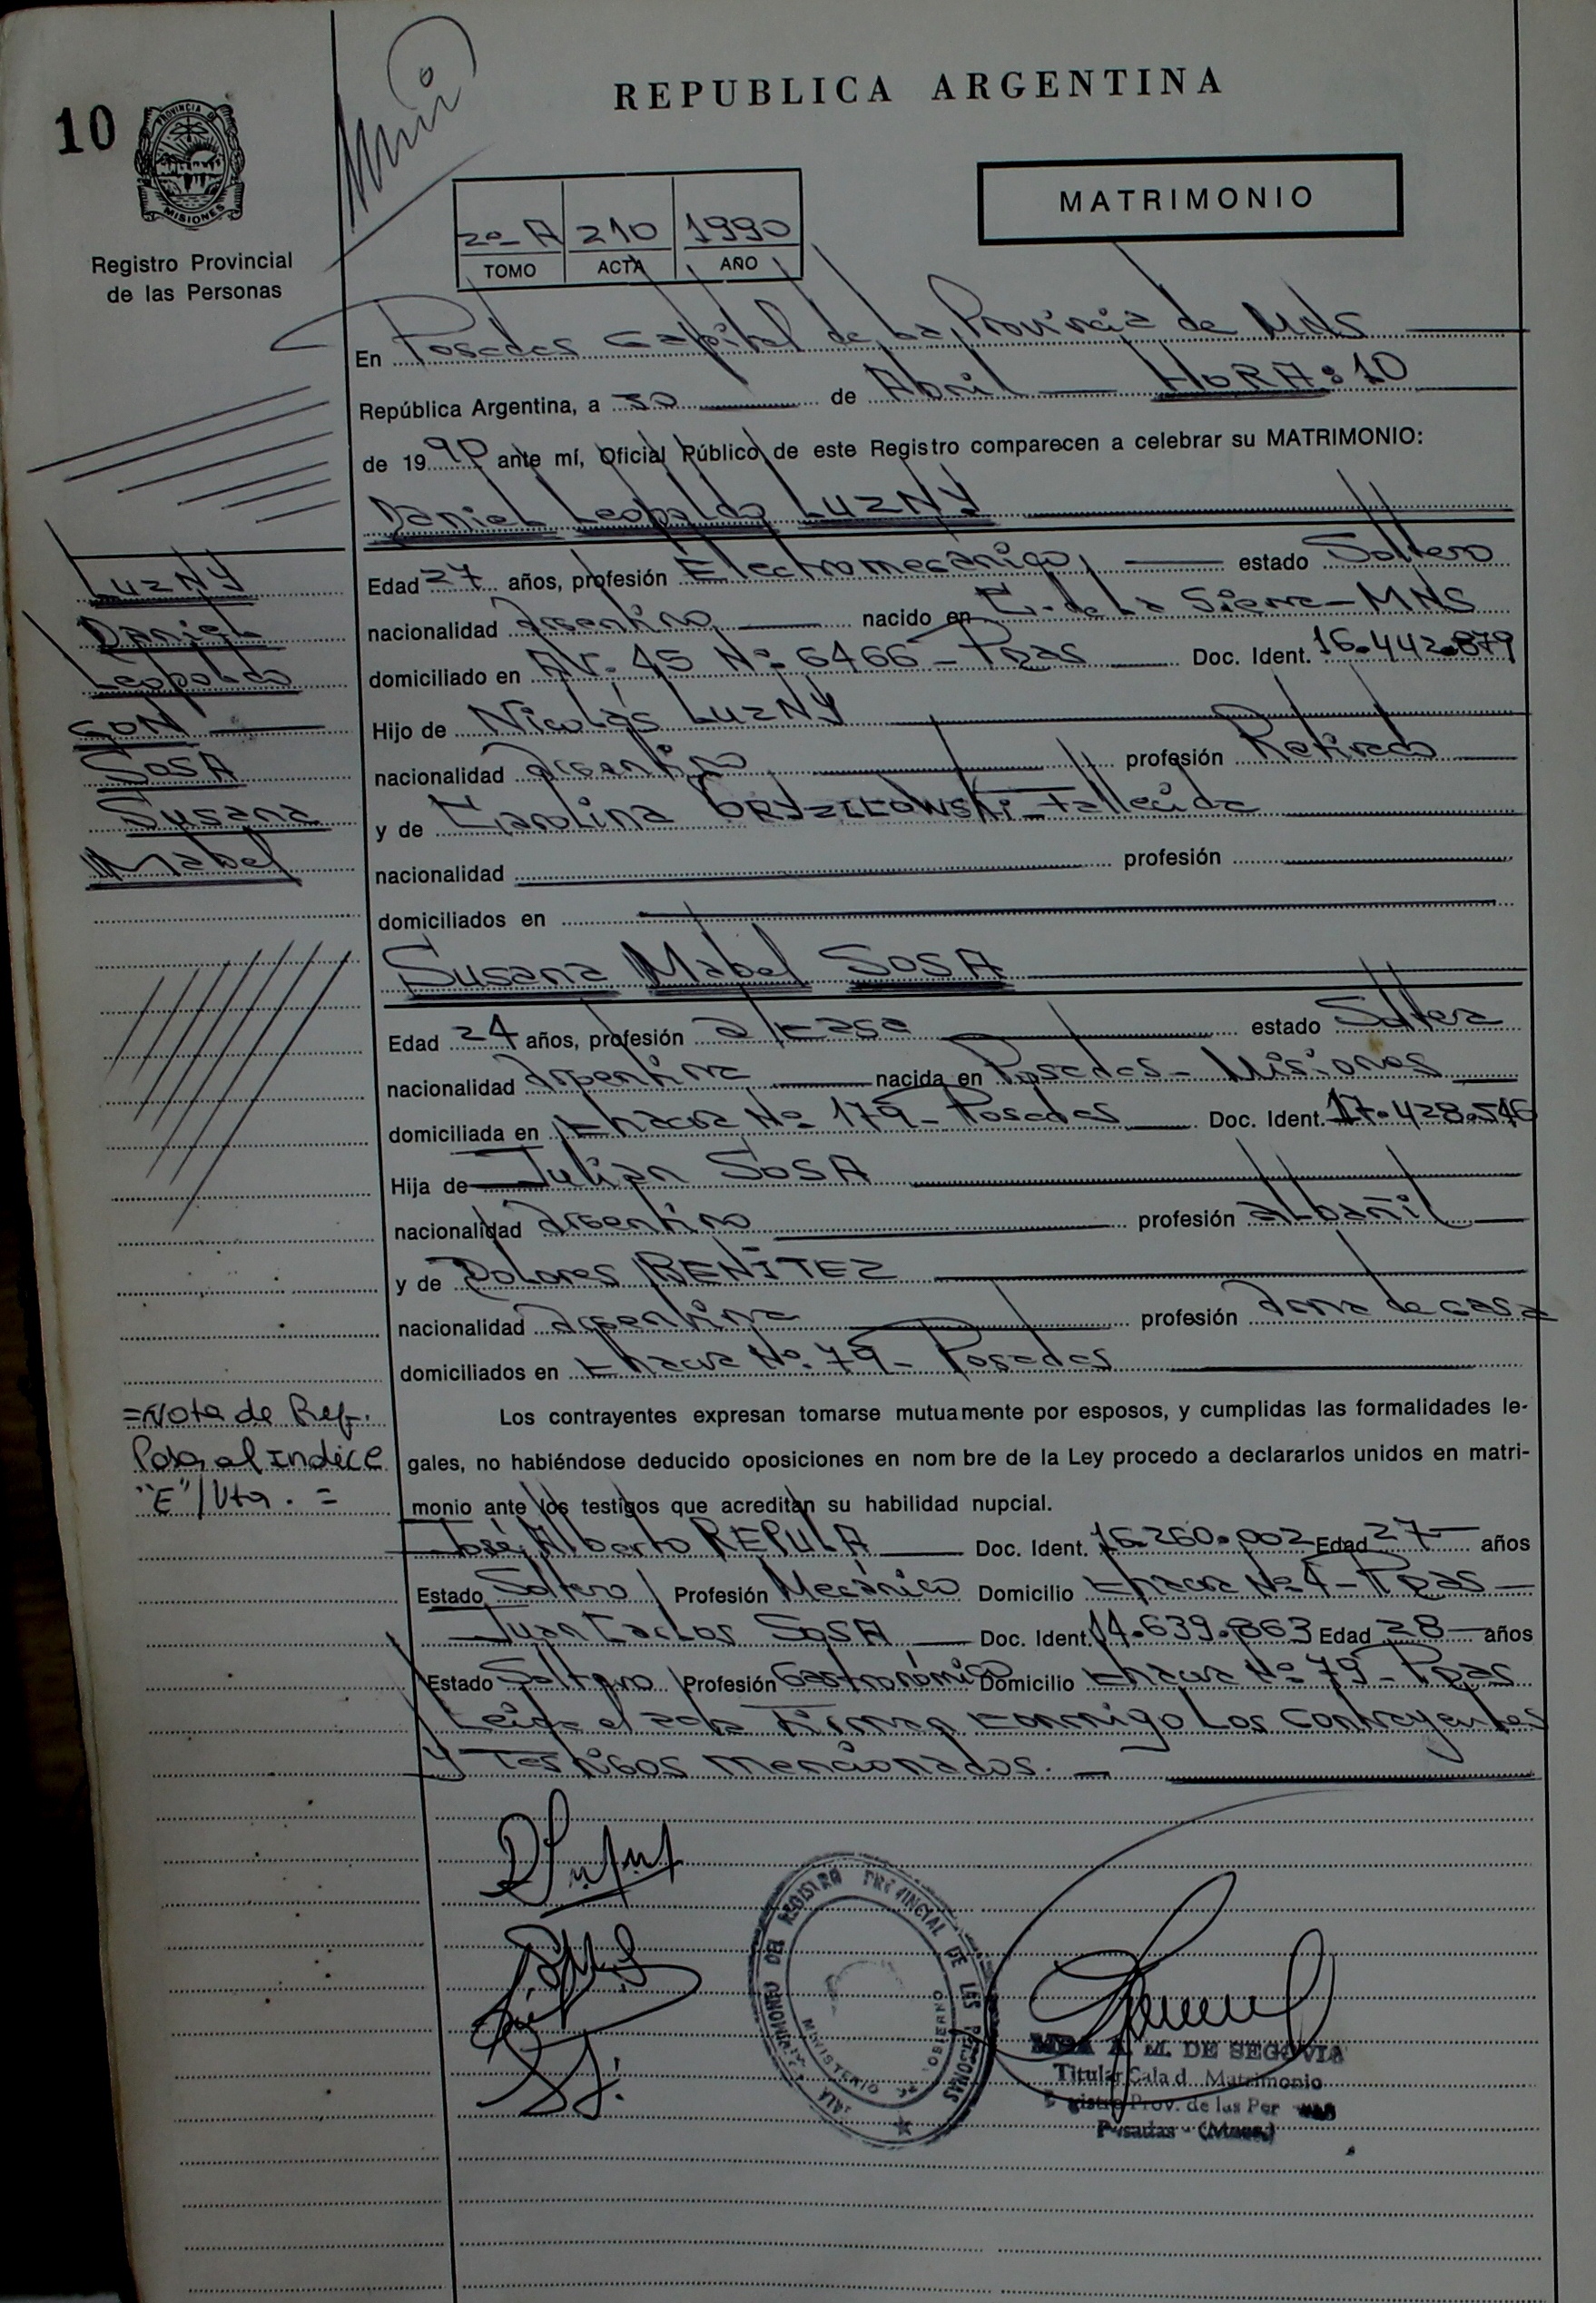 REPUBLICA ARGENTINA
10
PROVINCIA DE MISIONES
Registro Provincial
de las Personas
2º A 210 1990
TOMO ACTA AÑO
MATRIMONIO
En Posadas Capital de La Provincia de MNS
República Argentina, a 30 de Abril HORA: 10
de 1990 ante mí, Oficial Público de este Registro comparecen a celebrar su MATRIMONIO:
Daniel Leopoldo LUZNY
LUZNY
Daniel
Leopoldo
CON
SOSA
Susana
Mabel
Edad 27 años, profesión Electromecánico estado Soltero
nacionalidad Argentino nacido en C. de La Sierra - MNS
domiciliado en AV. 45 Nº 6466 - Pdas Doc. Ident. 16.442.879
Hijo de Nicolás LUZNY
nacionalidad Argentino profesión Retirado
y de Carolina fallecida
nacionalidad profesión
domiciliados en
Susana Mabel SOSA
Edad 24 años, profesión a/casa estado Soltera
nacionalidad Argentina nacida en Posadas - Misiones
domiciliada en Chacra Nº 179 - Posadas Doc. Ident. 17.428.546
Hija de Julian SOSA
nacionalidad Argentino profesión albañil
y de Dolores BENITEZ
nacionalidad Argentina profesión Ama de casa
domiciliados en Chacra Nº 79 - Posadas
=Nota de Ref.
Pasa al Indice
"E"/Vta. =
Los contrayentes expresan tomarse mutuamente por esposos, y cumplidas las formalidades le-
gales, no habiéndose deducido oposiciones en nom bre de la Ley procedo a declararlos unidos en matri-
monio ante los testigos que acreditan su habilidad nupcial.
José Alberto REPULA Doc. Ident. 16.260.002 Edad 27 años
Estado Soltero Profesión Mecánico Domicilio Chacra Nº 4 - Pdas
Juan Carlos SOSA Doc. Ident. 14.639.863 Edad 28 años
Estado Soltero Profesión Gastronómico Domicilio Chacra Nº 79 - Pdas
Leída el acta Firman conmigo Los Contrayentes
y Testigos mencionados.
SALA MATRIMONIO DEL REGISTRO PROVINCIAL DE LAS PERSONAS
MINISTERIO DE GOBIERNO
A. M. DE SEGOVIA
Titular Sala d Matrimonio
Registro Prov. de las Per
Posadas - (Mnes.)